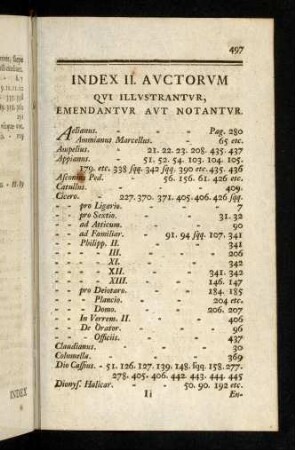 497
INDEX II. AVCTORVM
QVI ILLVSTRANTVR,
EMENDANTVR AVT NOTANTVR.
Aelianus. - - - Pag. 280
Ammianus Marcellus. - - 65 etc.
Ampelius. - - 21. 22. 23. 208. 435. 437
Appianus. - 51. 52. 54. 103. 104. 105.
179. etc. 338 sqq. 342 sqq. 390 etc. 435. 436
Asconius Ped. - 56. 156. 61. 426 etc.
Catullus. - - - 409.
Cicero. 227. 370. 371. 405. 406. 426 sqq.
- - pro Ligario. - - 7
- - pro Sextio. - - 31. 32
- - ad Atticum. - - 90
- - ad Familiar. - 91. 94 sqq. 107. 341
- - Philipp. II. - - 341
- - - III. - - 206
- - - XI. - - 342
- - - XII. - - 341. 342
- - - XIII. - - 146. 147
- - pro Deiotaro. - - 184. 185
- - - Plancio. - - 204 etc.
- - - Domo. - - 206. 207
- - In Verrem. II. - - 406
- - De Orator. - - 96
- - - Officiis. - - 437
Claudianus. - - - 30
Columella. - - - 369
Dio Cassius. - 51. 126. 127. 139. 148. sqq. 158. 277.
278. 405. 406. 442. 443. 444. 445
Dionys. Halicar. - 50. 90. 192 etc.
Ii En-
INDEX